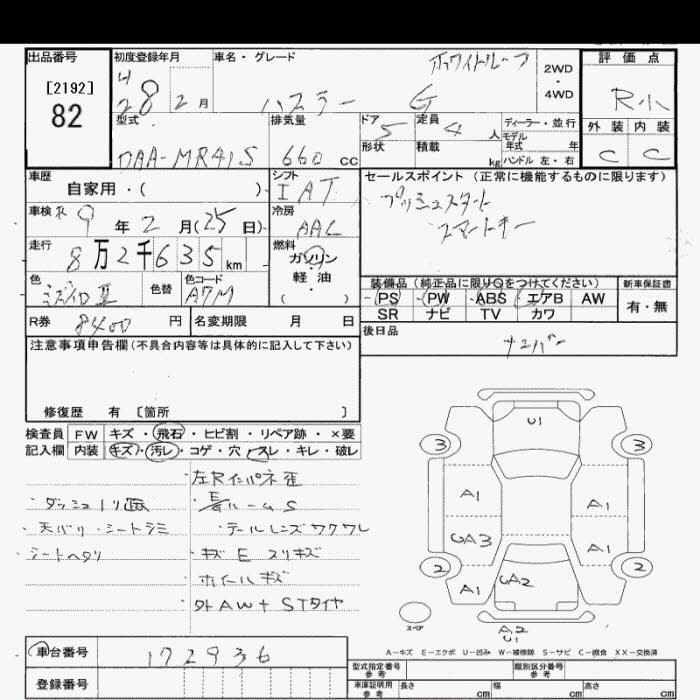 出品番号
[2192]
82
初度登録年月
H28 2月
車名・グレード
ホワイトルーフ
ハスラー G
2WD
・
4WD
評価点
R小
外装 内装
C C
型式
DAA-MR41S
排気量
660 cc
ドア 5
形状
定員 4 人
積載 kg
ディーラー・並行
モデル年式 年
ハンドル 左・右
車歴
自家用・( )
シフト
IAT
車検 R 9 年 2 月(25日)
冷房
AAC
走行
8万2千635km
燃料
ガソリン
・
軽油
( )
色
ミズイロⅡ
色替
色コード
A7M
R券 8400 円
名変期限 月 日
セールスポイント(正常に機能するものに限ります)
プッシュスタート
スマートキー
装備品(純正品に限り○をつけてください)
PS PW ABS エアB AW
SR ナビ TV カワ
新車保証書
有・無
後日品
ナンバー
注意事項申告欄(不具合内容等は具体的に記入して下さい)
修復歴 有 〔箇所 〕
検査員記入欄
FW キズ・飛石・ヒビ割・リペア跡・×要
内装 キズ・汚レ・コゲ・穴・スレ・キレ・破レ
左Rインパネ歪
・ダッシュノリ
ルームS
・天バリ・シート
・テールレンズワクワレ
シートヘタリ
・キズ E スリキズ
ホイールキズ
外AW+STタイヤ
U1
3 3
A1 A1
UA3 A1
2 2
A1 UA2 A1
スペア
A2
U1
A-キズ E-エクボ U-凹み W-補修跡 S-サビ C-腐食 XX-交換済
車台番号 172936
登録番号
型式指定番号
参考
類別区分番号
参考
車庫証明用
参考
長さ cm 幅 cm 高さ cm